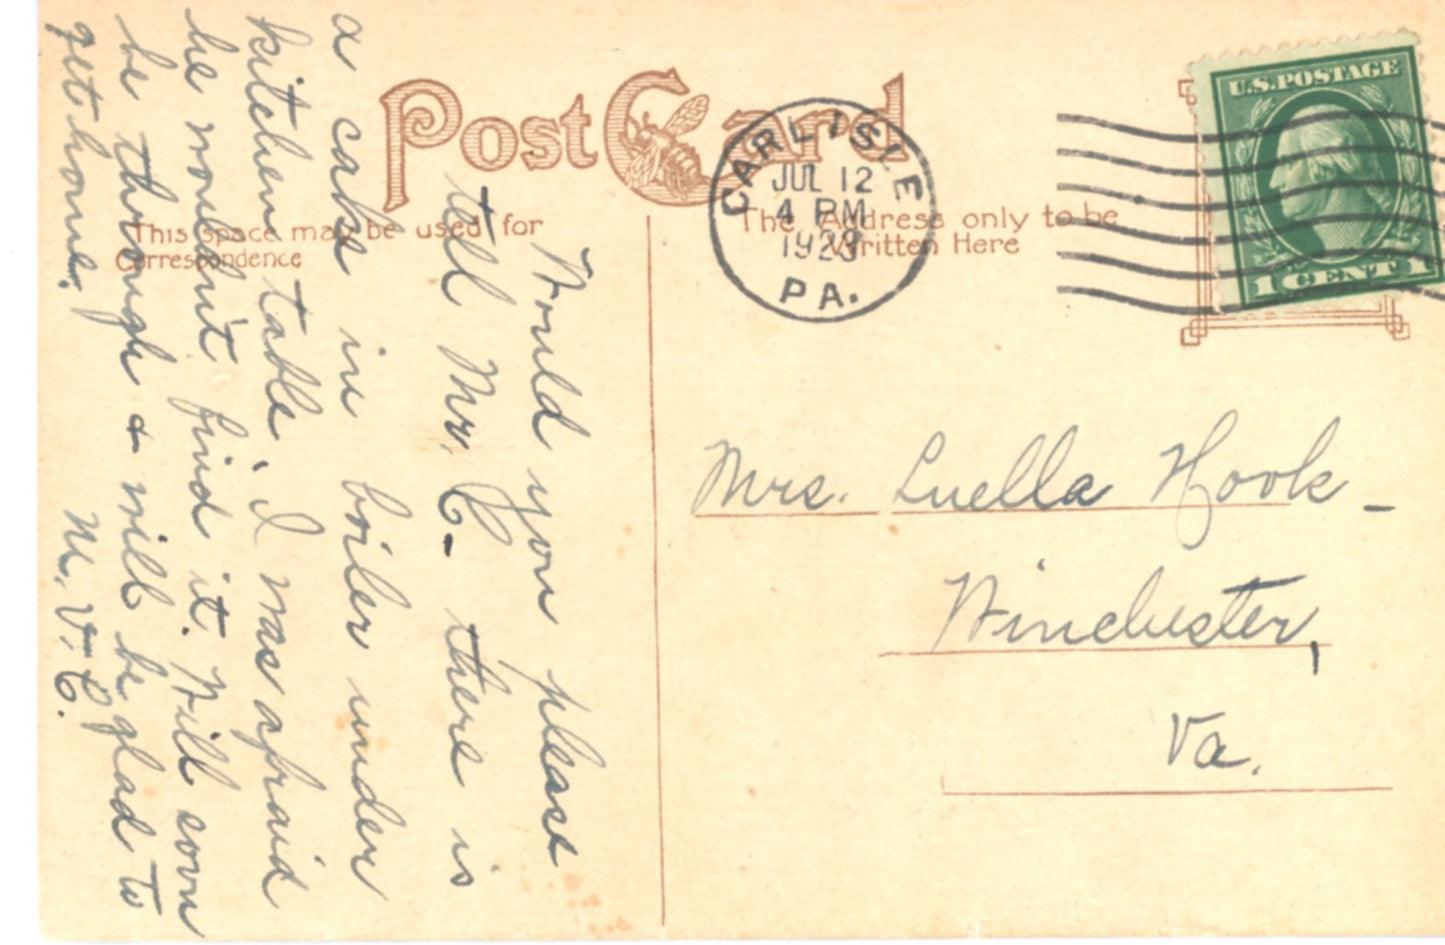 Post Card
This space may be used for
Correspondence
The Address only to be
Written Here
CARLISLE
JUL 12
4 PM
1923
PA.
U.S. POSTAGE
1 CENT 1
Would you please
tell Mr. C- there is
a cake in boiler under
kitchen table, I was afraid
he wouldn't find it. Will soon
be through & will be glad to
get home.
M. V. C.
Mrs. Luella Hook -
Winchester,
Va.